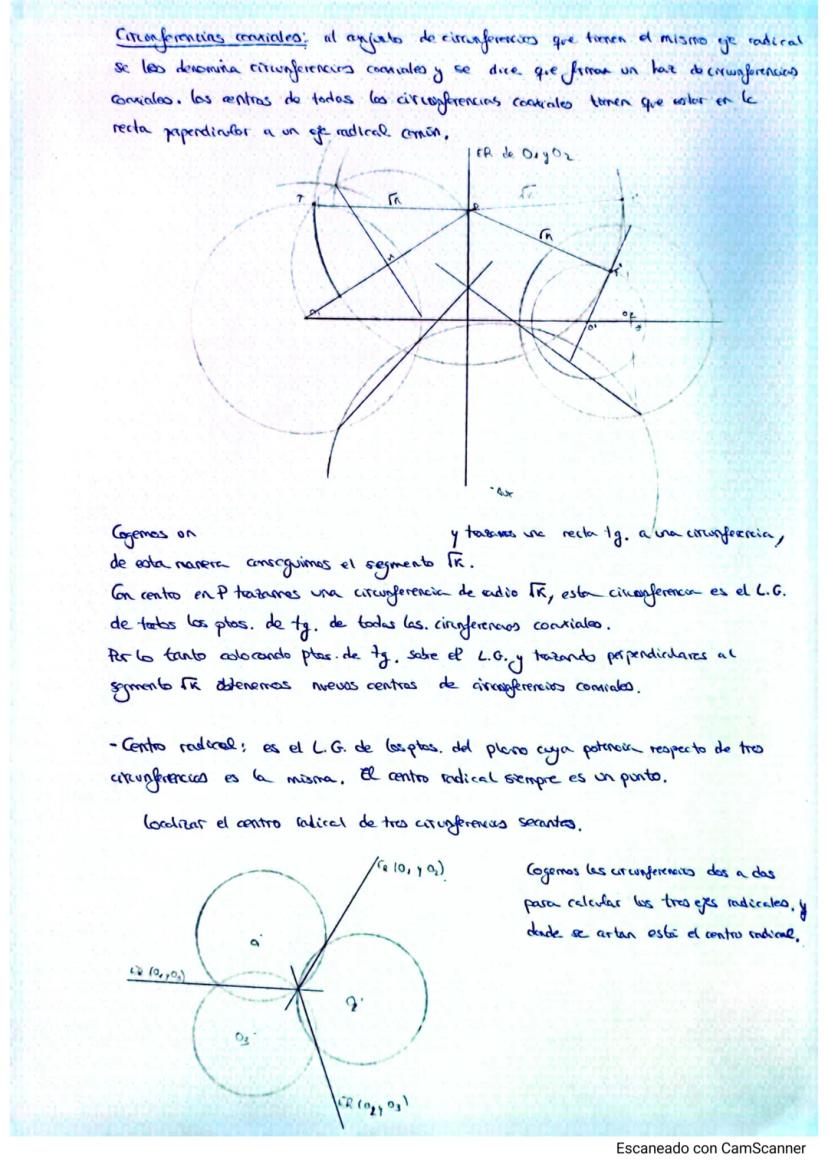 Circunferencias coaxiales: al conjunto de circunferencias que tienen el mismo eje radical
se les denomina circunferencias coaxiales y se dice que forman un haz de circunferencias
coaxiales. Los centros de todas las circunferencias coaxiales tienen que estar en la
recta perpendicular a un eje radical común.
ER de O1 y O2
T
√K
√K
P
√K
O1
O2
Aux
Cogemos un y trazamos una recta tg. a una circunferencia,
de esta manera conseguimos el segmento √K.
Con centro en P trazamos una circunferencia de radio √K, esta circunferencia es el L.G.
de todos los ptos. de tg. de todas las circunferencias coaxiales.
Por lo tanto colocando ptos. de tg. sobre el L.G. y trazando perpendiculares al
segmento √K obtenemos nuevos centros de circunferencias coaxiales.
- Centro radical: es el L.G. de los ptos. del plano cuya potencia respecto de tres
circunferencias es la misma. El centro radical siempre es un punto.
Localizar el centro radical de tres circunferencias secantes.
ER (O1 y O2)
Cogemos las circunferencias dos a dos
para calcular los tres ejes radicales, y
donde se cortan está el centro radical.
O1
ER (O1 y O3)
O2
O3
ER (O2 y O3)
Escaneado con CamScanner